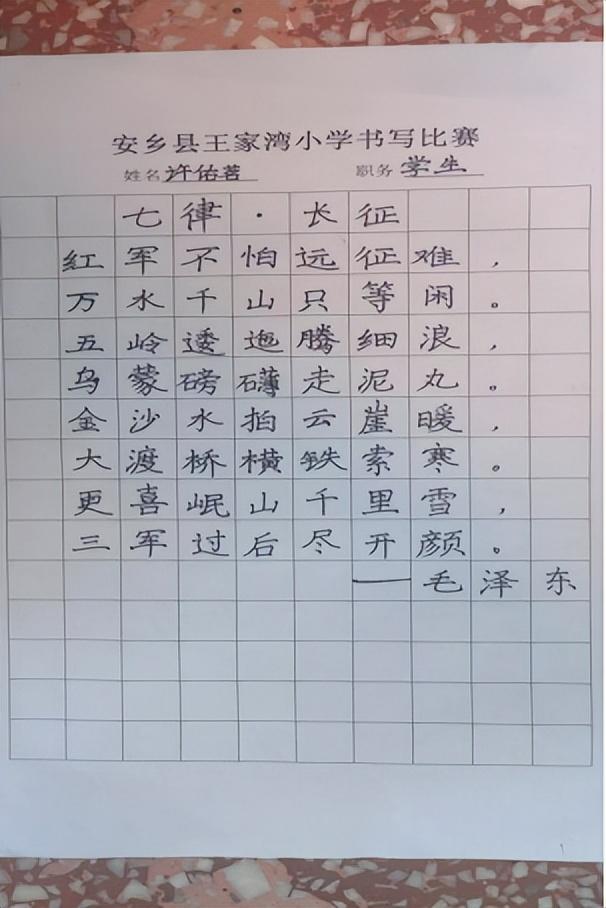 安乡县王家湾小学书写比赛
姓名 许佑菩 职务 学生
七律·长征
红军不怕远征难，
万水千山只等闲。
五岭逶迤腾细浪，
乌蒙磅礴走泥丸。
金沙水拍云崖暖，
大渡桥横铁索寒。
更喜岷山千里雪，
三军过后尽开颜。
——毛泽东